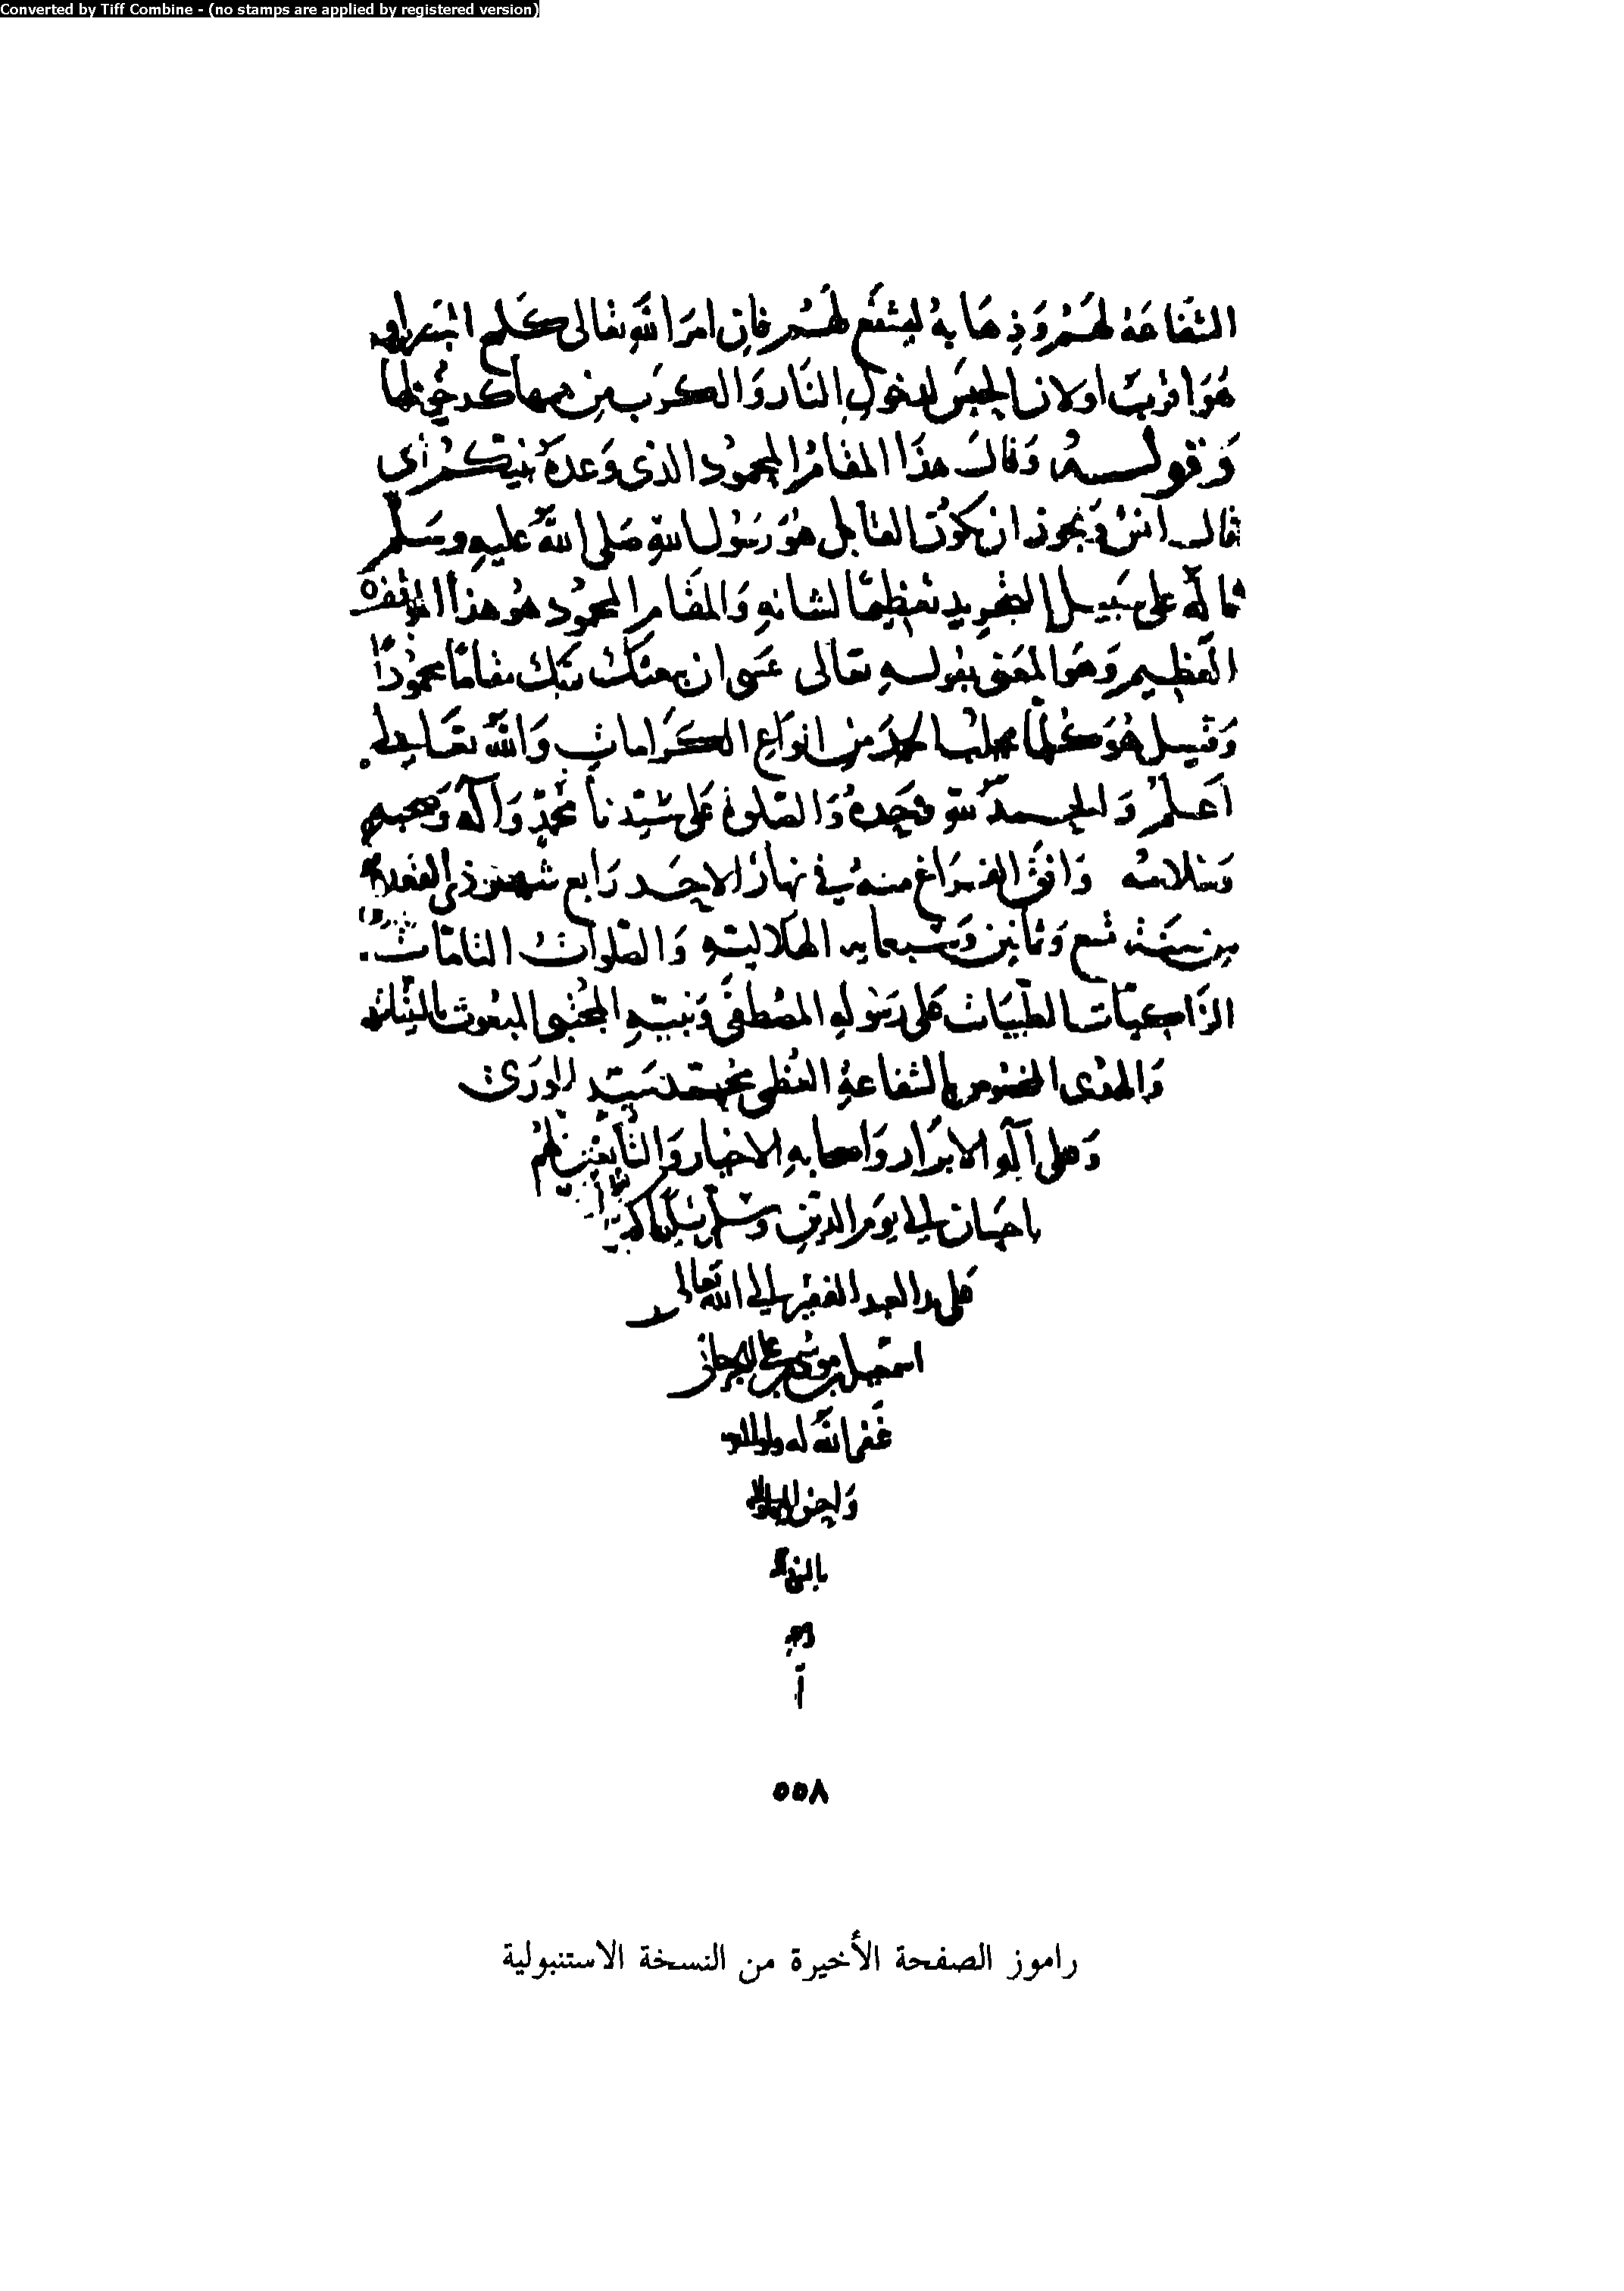 Converted by Tiff Combine - (no stamps are applied by registered version)
الشفاعة لهم وذهابه ليشفع لهم فان امر الله تعالى كلمح البصر او
هو اقرب اولان الحبس لدخول النار والكرب من همها كدخولها
وقوله وقال هذا المقام المحمود الذي وعده نبيكم اى
قال انس ويجوز ان يكون القايل هو رسول الله صلى الله عليه وسلم
قاله على سبيل التجريد تعظيما لشانه والمقام المحمود هو هذا
العظيم وهو المعنى بقوله تعالى عسى ان يبعثك ربك مقاما محمودا
وقيل هو كل ما يجلب الحمد من انواع الكرامات والله تعالى
اعلم والحمد لله وحده والصلوة على سيدنا محمد وآله وصحبه
وسلامه وافق الفراغ منه في نهار الاحد رابع شهر ذى القعدة
من سنة تسع وثمانين وسبعمايه الهلاليه والصلوات التامات
الزاكيات الطيبات على رسوله المصطفى ونبيه المجتبى المبعوث
والهدى المخصوص بالشفاعة العظمى محمد سيد الورى
وعلى آله الابرار واصحابه الاخيار والتابعين لهم
باحسان الى يوم الدين وسلم تسليما كثيرا
على يد العبد الفقير الى الله تعالى
اسمعيل بن موسى بن
غفر الله له ولوالديه
٥٥٨
راموز الصفحة الأخيرة من النسخة الاستنبولية